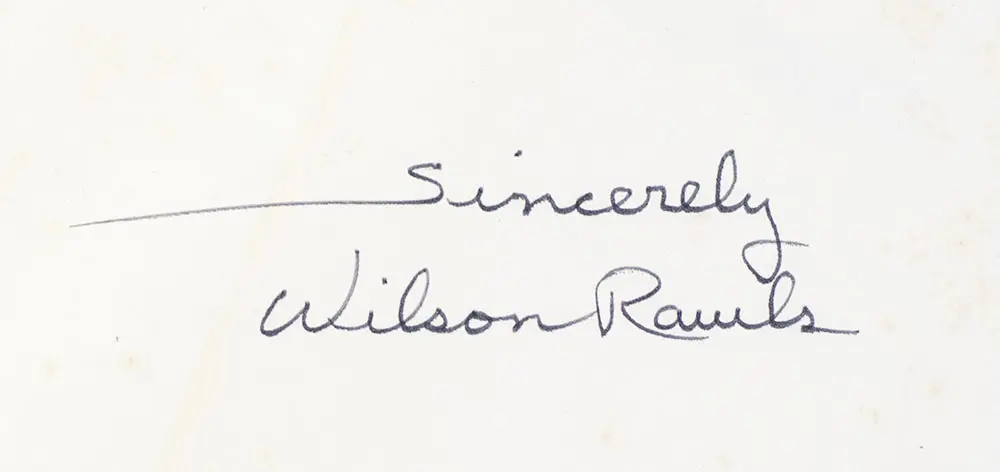 Sincerely
Wilson Rawls